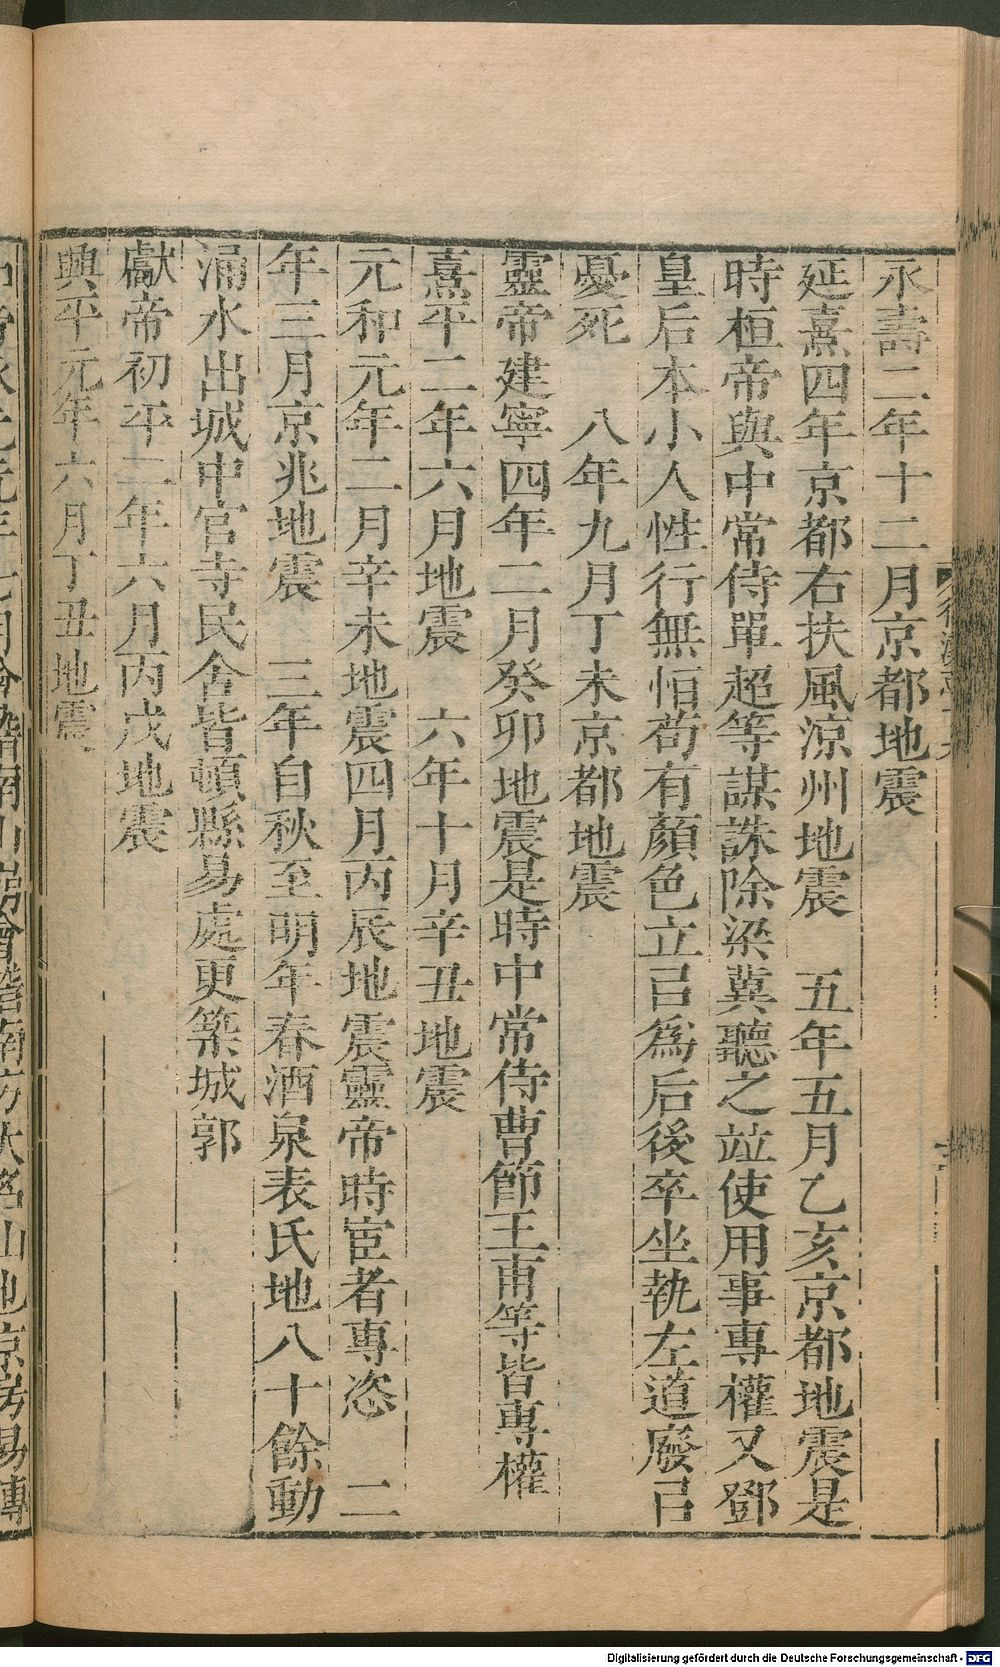 永壽二年十二月京都地震
延熹四年京都右扶風涼州地震　五年五月乙亥京都地震是
時桓帝與中常侍單超等謀誅除梁冀聽之竝使用事專權又鄧
皇后本小人性行無恒苟有顏色立㠯爲后後卒坐執左道廢㠯
憂死　八年九月丁未京都地震
靈帝建寧四年二月癸卯地震是時中常侍曹節王甫等皆專權
熹平二年六月地震　六年十月辛丑地震
元和元年二月辛未地震四月丙辰地震靈帝時宦者專恣　二
年三月京兆地震　三年自秋至明年春酒泉表氏地八十餘動
涌水出城中官寺民舍皆頓縣易處更築城郭
獻帝初平二年六月丙戌地震
興平元年六月丁丑地震
元年七月會稽南山崩會稽南方大名山也京房易傳
Digitalisierung gefördert durch die Deutsche Forschungsgemeinschaft - DFG